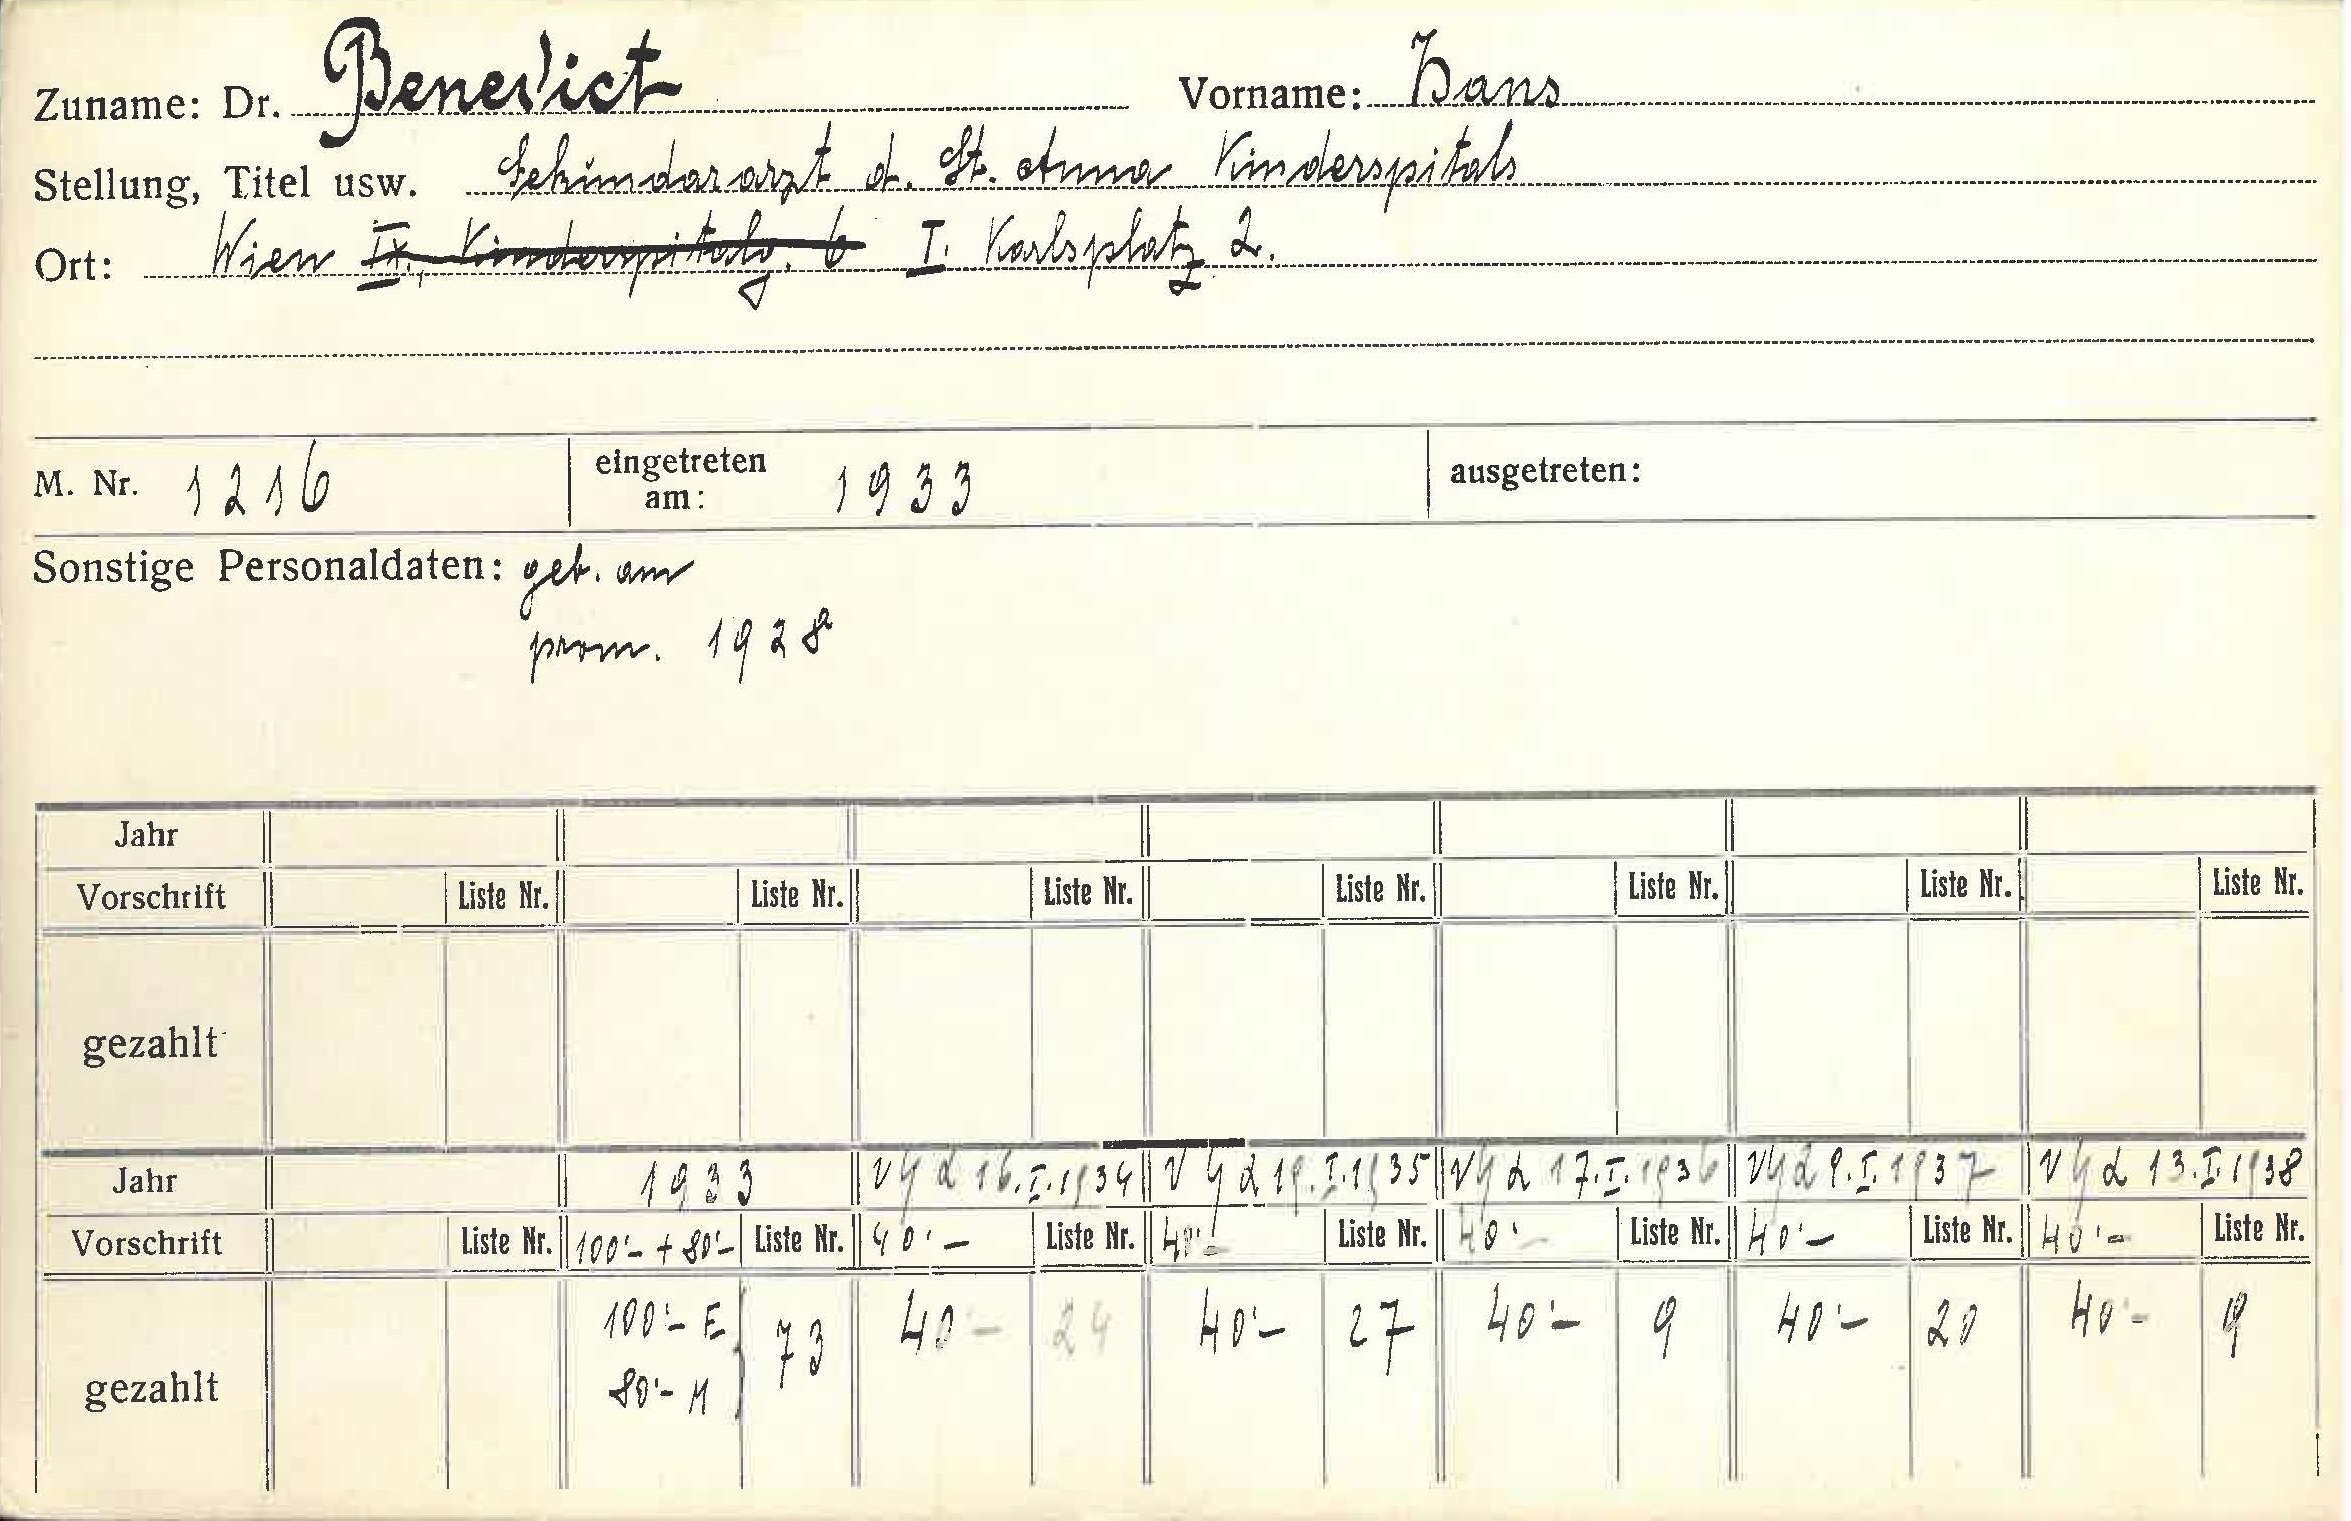 Zuname: Dr. Benedict Vorname: Hans
Stellung, Titel usw. Sekundararzt d. St. Anna Kinderspitals
Ort: Wien IX., Kinderspitalg. 6 I. Karlsplatz 2.
M. Nr. 1216 eingetreten am: 1933 ausgetreten:
Sonstige Personaldaten: geb. am
prom. 1928
Jahr
Vorschrift Liste Nr. Liste Nr. Liste Nr. Liste Nr. Liste Nr. Liste Nr. Liste Nr.
gezahlt
Jahr 1933 16.I.1934 19.I.1935 17.I.1936 9.I.1937 13.I.1938
Vorschrift Liste Nr. 100'- + 80'- Liste Nr. 40'- Liste Nr. 40'- Liste Nr. 40'- Liste Nr. 40'- Liste Nr. 40'- Liste Nr.
100'- E 73 40'- 24 40'- 27 40'- 9 40'- 20 40'- 9
gezahlt 80'- M